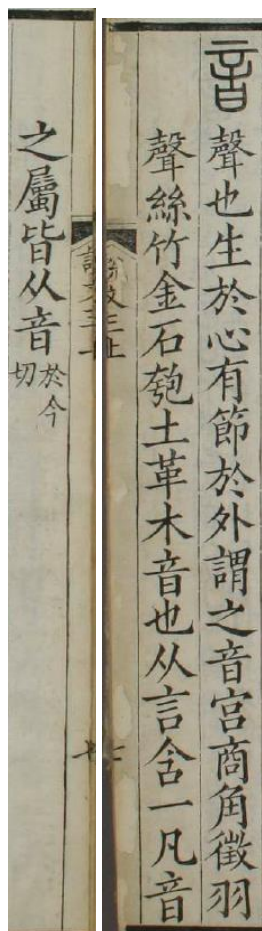 音聲也生於心有節於外謂之音宮商角徵羽
聲絲竹金石匏土革木音也从言含一凡音
說文三上
七
說文三上
七
之屬皆从音於今
切